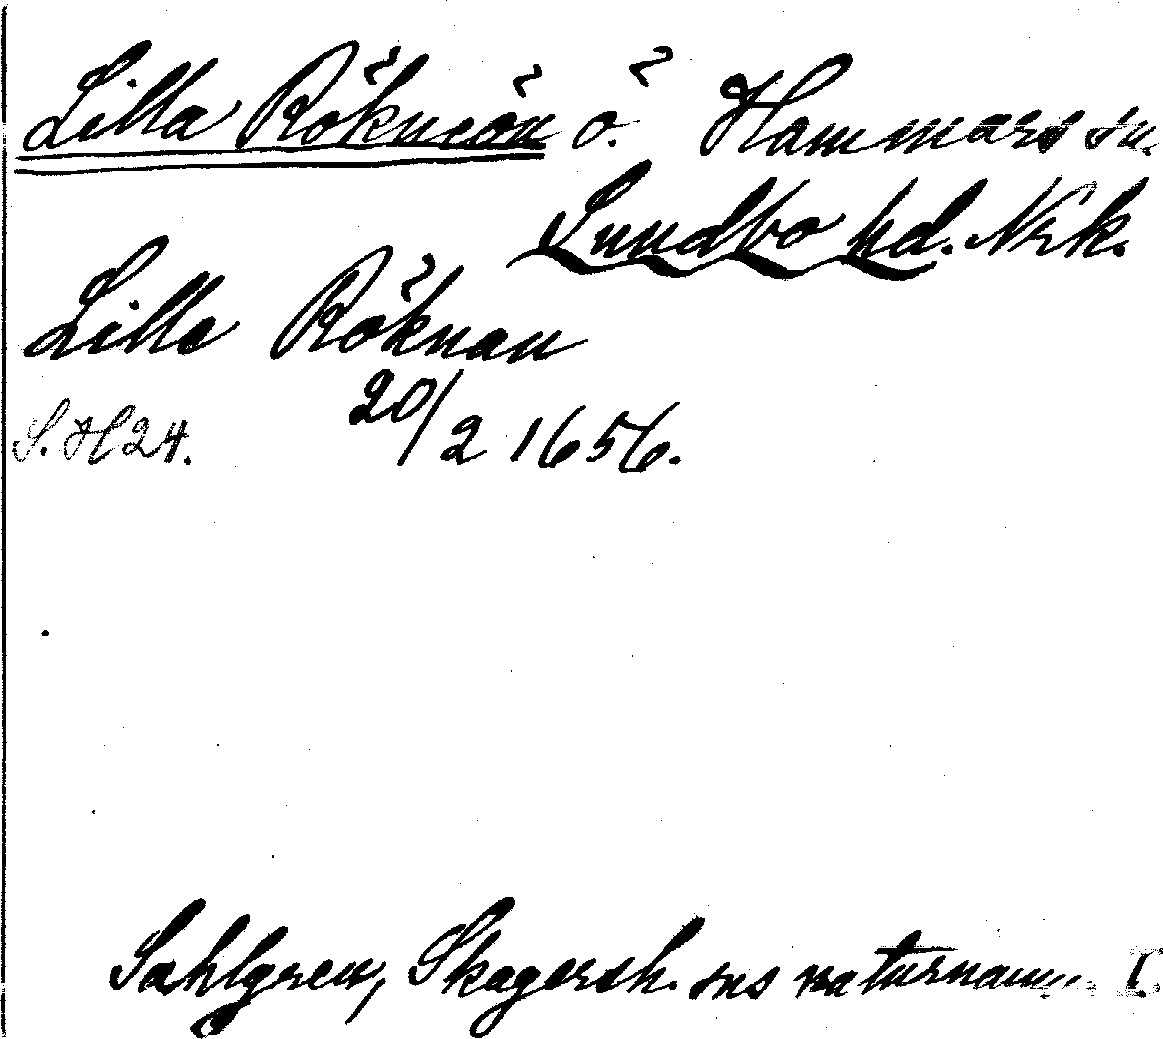 Lilla Rökneön ö. Hammars sn.
Sundbo hd. Nrk.
Lilla Röknan
S. H 24. 20/2 1656.
Sahlgren, Skagersh. sns naturnamn I.